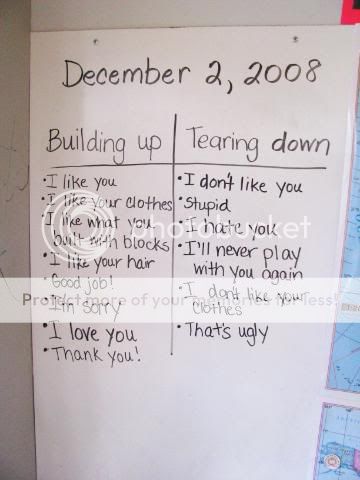 December 2, 2008
Building up
• I like you
• I like your clothes
• I like what you
built with blocks
• I like your hair
• Good job!
• I'm sorry
• I love you
• Thank you!
Tearing down
• I don't like you
• Stupid
• I hate you
• I'll never play
with you again
• I don't like your
clothes
• That's ugly
photobucket
Protect more of your memories for less!